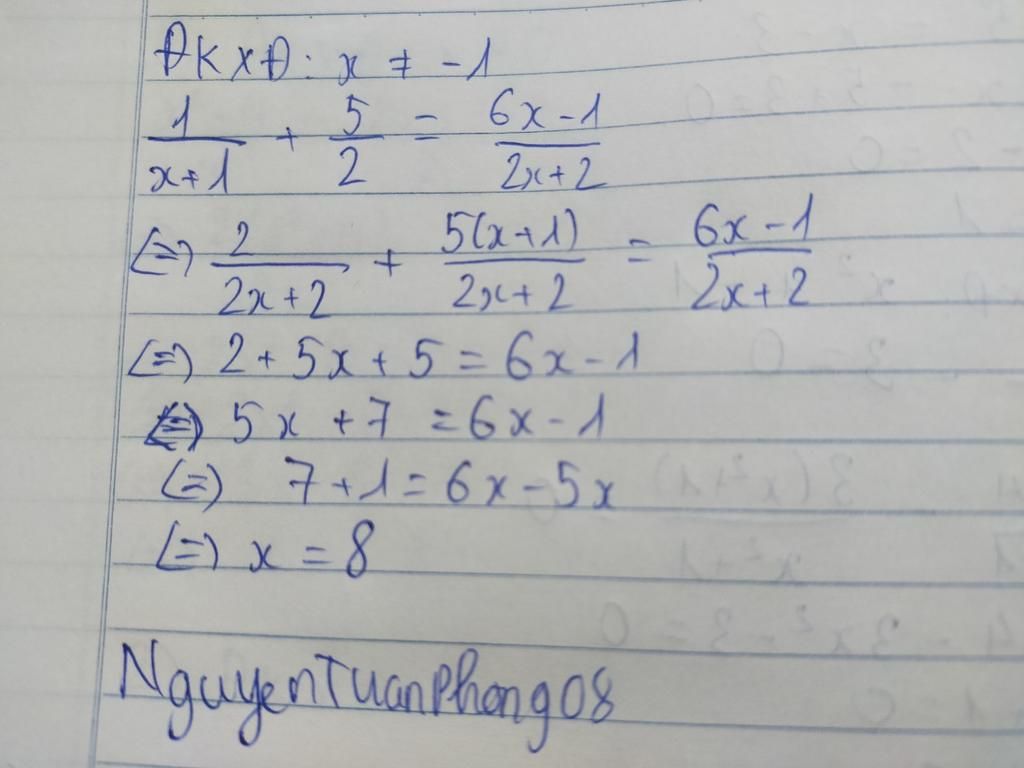 ĐKXĐ: x ≠ -1
1/(x+1) + 5/2 = (6x-1)/(2x+2)
(=) 2/(2x+2) + 5(x+1)/(2x+2) = (6x-1)/(2x+2)
(=) 2 + 5x + 5 = 6x - 1
(=) 5x + 7 = 6x - 1
(=) 7 + 1 = 6x - 5x
(=) x = 8
NguyenTuanPhong08